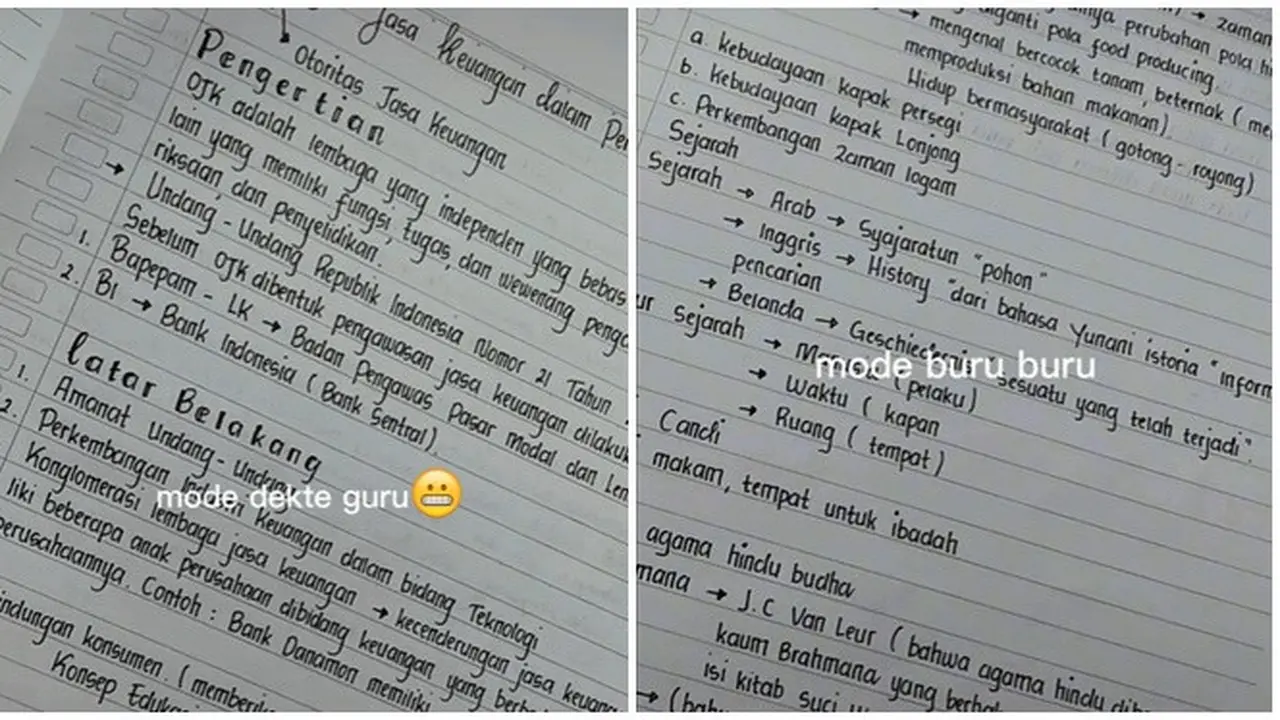 Jasa Keuangan dalam
Otoritas Jasa Keuangan
Pengertian
OJK adalah lembaga yang independen yang bebas
lain yang memiliki fungsi, tugas, dan wewenang
riksaan, dan penyelidikan.
→ Undang - Undang Republik Indonesia Nomor 21 Tahun
Sebelum OJK dibentuk pengawasan jasa keuangan
1. Bapepam - LK → Badan Pengawas Pasar Modal dan
2. BI → Bank Indonesia (Bank Sentral).
latar Belakang
1. Amanat Undang - Undang
2. Perkembangan Keuangan dalam bidang Teknologi
Konglomerasi lembaga jasa keuangan → kecenderungan jasa
liki beberapa anak perusahaan dibidang keuangan yang
perusahaannya. Contoh : Bank Danamon memiliki
konsumen.
Konsep
mode dekte guru😬
perubahan pola
pola food producing
→ mengenal bercocok tanam, beternak (
memproduksi bahan makanan)
Hidup bermasyarakat (gotong - royong)
a. kebudayaan kapak persegi
b. kebudayaan kapak Lonjong
c. Perkembangan zaman logam
Sejarah
Sejarah → Arab → Syajaratun "pohon"
→ Inggris → History "dari bahasa Yunani istoria "
pencarian
→ Belanda → sesuatu yang telah terjadi".
sejarah → (pelaku)
→ Waktu ( kapan
→ Ruang ( tempat )
mode buru buru
Candi
makam, tempat untuk ibadah
agama hindu budha
→ J.C Van Leur ( bahwa agama hindu
kaum Brahmana yang
isi kitab suci